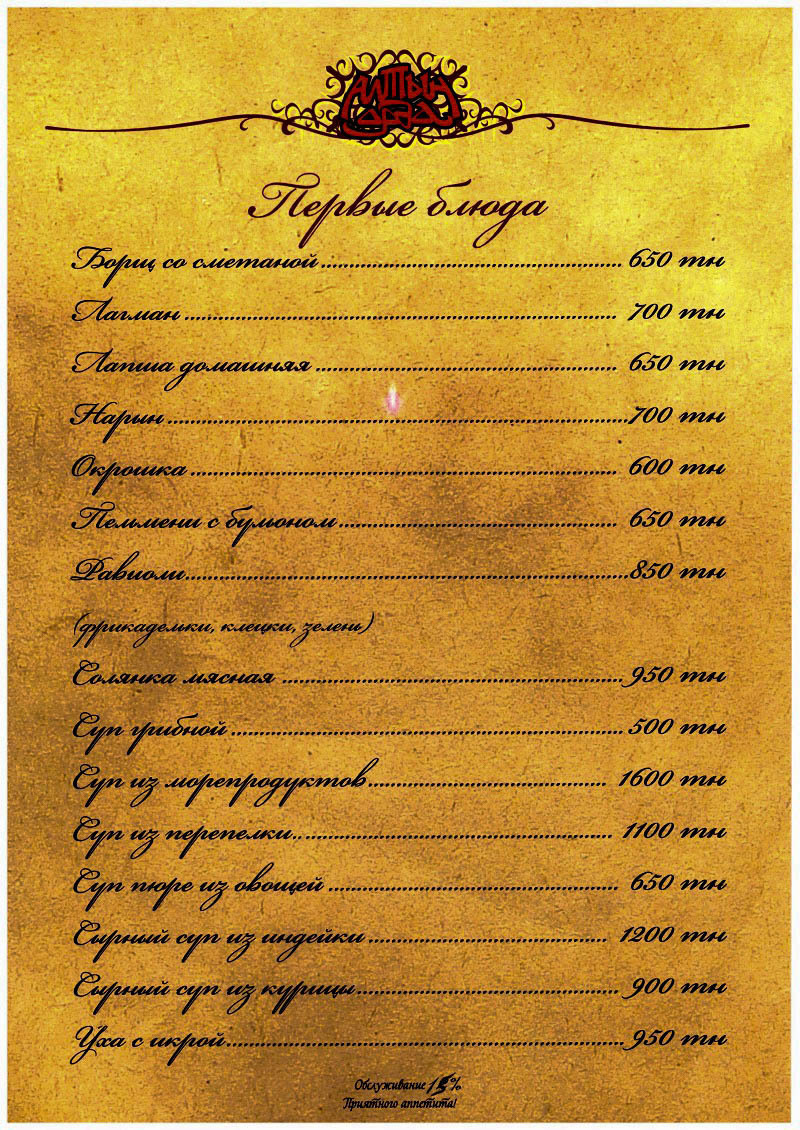 Алтын
Орда
Первые блюда
Борщ со сметаной ........ 650 тн
Лагман ........ 700 тн
Лапша домашняя ........ 650 тн
Нарын ........ 700 тн
Окрошка ........ 600 тн
Пельмени с бульоном ........ 650 тн
Равиоли ........ 850 тн
(фрикадельки, клецки, зелень)
Солянка мясная ........ 950 тн
Суп грибной ........ 500 тн
Суп из морепродуктов ........ 1600 тн
Суп из перепелки ........ 1100 тн
Суп пюре из овощей ........ 650 тн
Сырный суп из индейки ........ 1200 тн
Сырный суп из курицы ........ 900 тн
Уха с икрой ........ 950 тн
Обслуживание
Приятного аппетита!